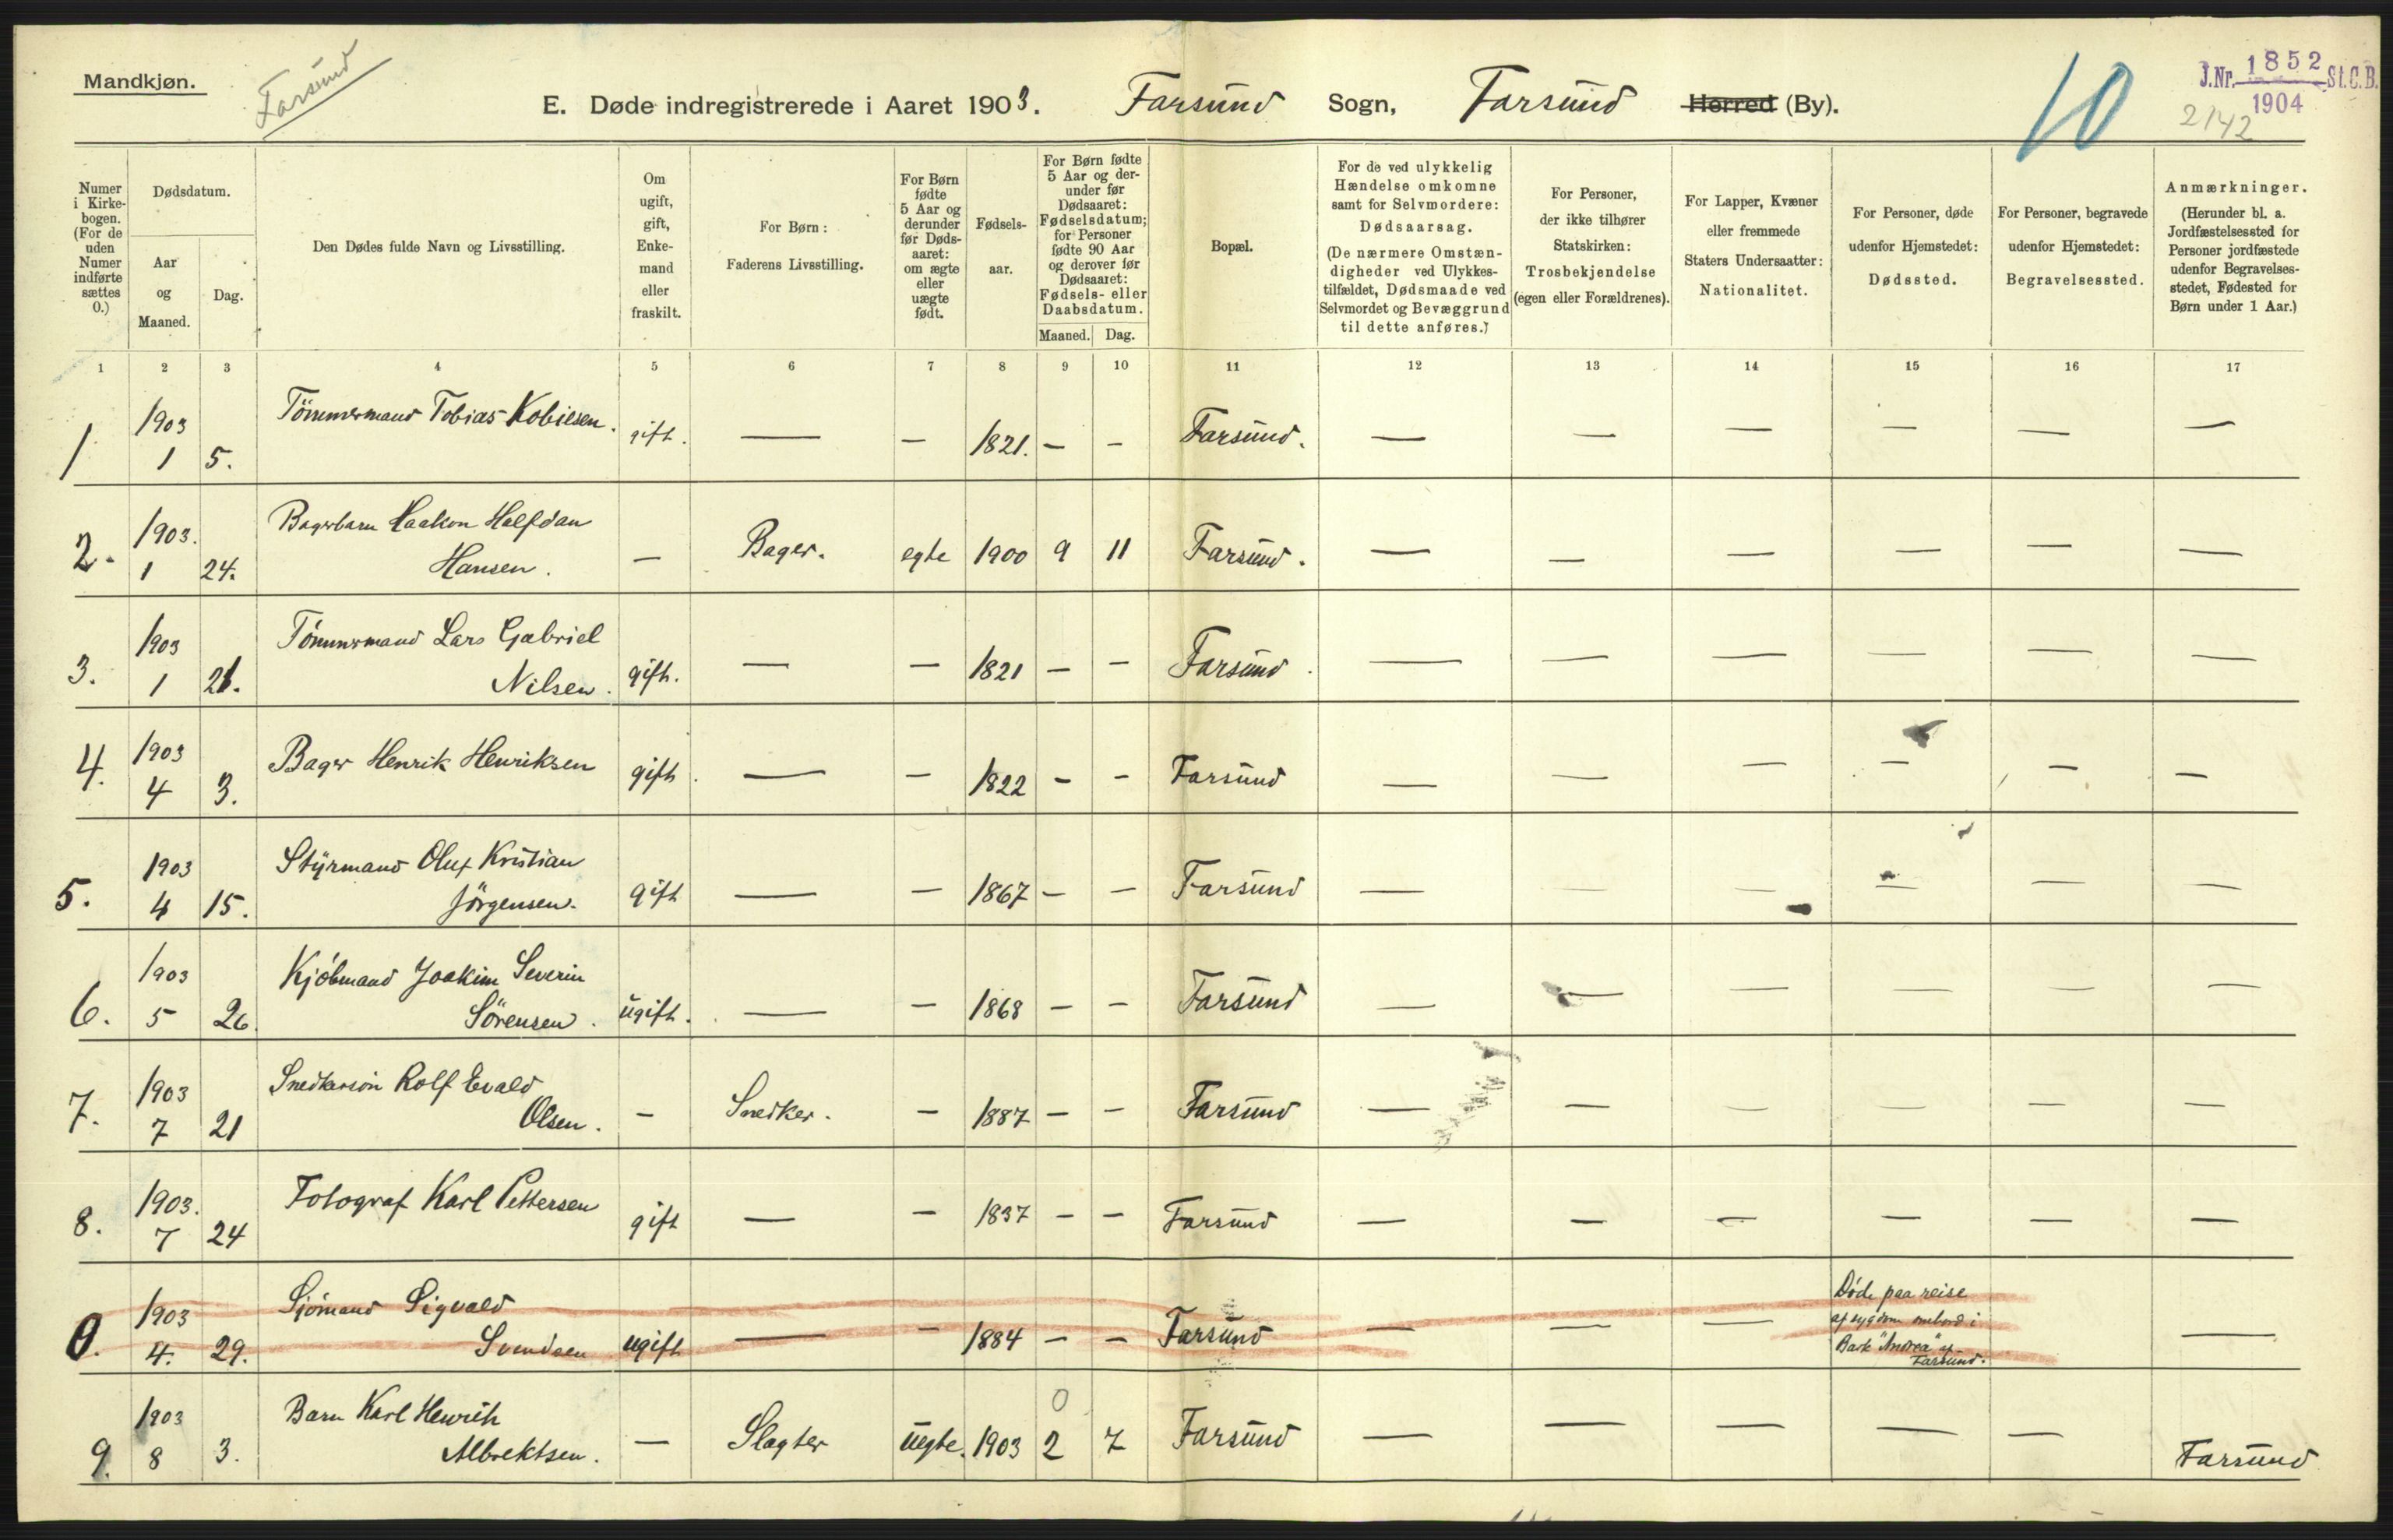 Mandkjøn.
Farsund
E. Døde indregistrerede i Aaret 1903. Farsund Sogn, Farsund Herred (By).
10
J.Nr. 1852 St.C.B.
1904
2142
Numer i Kirkebogen. (For de uden Numer indførte sættes 0.)
Dødsdatum.
Aar og Maaned.
Dag.
Den Dødes fulde Navn og Livsstilling.
Om ugift, gift, Enkemand eller fraskilt.
For Børn: Faderens Livsstilling.
For Børn fødte 5 Aar og derunder før Dødsaaret: om ægte eller uægte født.
Fødselsaar.
For Børn fødte 5 Aar og derunder før Dødsaaret: Fødselsdatum; for Personer fødte 90 Aar og derover før Dødsaaret: Fødsels- eller Daabsdatum.
Maaned. Dag.
Bopæl.
For de ved ulykkelig Hændelse omkomne samt for Selvmordere: Dødsaarsag. (De nærmere Omstændigheder ved Ulykkestilfældet, Dødsmaade ved Selvmordet og Bevæggrund til dette anføres.)
For Personer, der ikke tilhører Statskirken: Trosbekjendelse (egen eller Forældrenes).
For Lapper, Kvæner eller fremmede Staters Undersaatter: Nationalitet.
For Personer, døde udenfor Hjemstedet: Dødssted.
For Personer, begravede udenfor Hjemstedet: Begravelsessted.
Anmærkninger. (Herunder bl. a. Jordfæstelsessted for Personer jordfæstede udenfor Begravelsesstedet, Fødested for Børn under 1 Aar.)
1 2 3 4 5 6 7 8 9 10 11 12 13 14 15 16 17
1 1903 1 5. Tömmermand Tobias Kobiesen. gift. — — 1821. — — Farsund. — — — — — —
2. 1903. 1 24. Bagerbarn Haakon Halfdan Hansen. — Bager. egte 1900 9 11 Farsund. — — — — — —
3. 1903 1 21. Tömmermand Lars Gabriel Nilsen. gift. — — 1821 — — Farsund — — — — — —
4. 1903 4 3. Bager Henrik Henriksen gift. — — 1822 — — Farsund — — — — — —
5. 1903 4 15. Styrmand Oluf Kristian Jörgensen. gift — — 1867 — — Farsund — — — — — —
6. 1903 5 26. Kjöbmand Joakim Severin Sörensen. ugift. — — 1868 — — Farsund — — — — — —
7. 1903 7 21 Snedkersön Rolf Evald Olsen. — Snedker. — 1887 — — Farsund — — — — — —
8. 1903. 7 24 Fotograf Karl Pettersen gift — — 1837 — — Farsund — — — — — —
0. 1903 4. 29. Sjömand Sigvald Svendsen ugift — — 1884 — — Farsund — — — Døde paa reise af sygdom ombord i Bark "Andrea" af Farsund. —
9. 1903 8 3. Barn Karl Henrik Albrektsen. — Slagter uegte. 1903 0 2 7 Farsund — — — — — Farsund